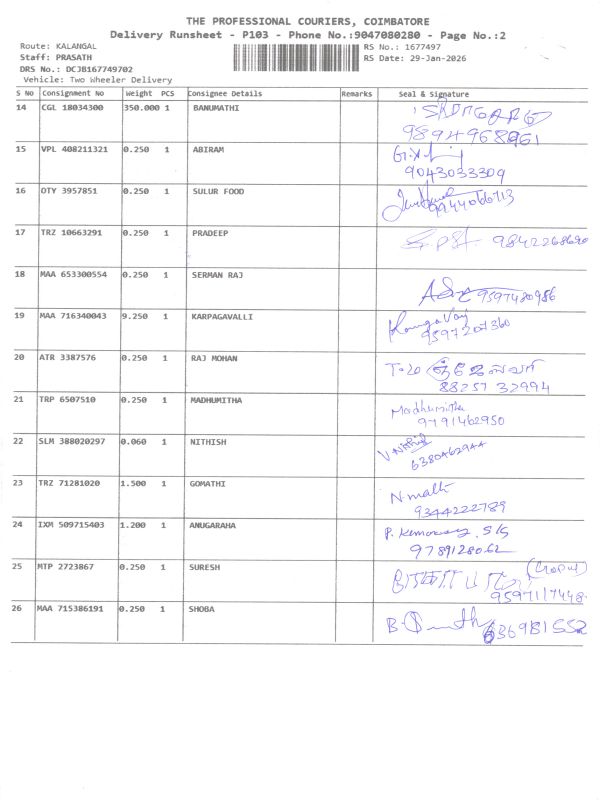 THE PROFESSIONAL COURIERS, COIMBATORE
Delivery Runsheet - P103 - Phone No.:9047080280 - Page No.:2
Route: KALANGAL RS No.: 1677497
Staff: PRASATH RS Date: 29-Jan-2026
DRS No.: DCJB167749702
Vehicle: Two Wheeler Delivery
S No Consignment No Weight PCS Consignee Details Remarks Seal & Signature
14 CGL 18034300 350.000 1 BANUMATHI
9894968961
15 VPL 408211321 0.250 1 ABIRAM
9043033309
16 OTY 3957851 0.250 1 SULUR FOOD
9944066713
17 TRZ 10663291 0.250 1 PRADEEP
9842268690
18 MAA 653300554 0.250 1 SERMAN RAJ
9597480986
19 MAA 716340043 9.250 1 KARPAGAVALLI
9597207360
20 ATR 3387576 0.250 1 RAJ MOHAN
88257 32994
21 TRP 6507510 0.250 1 MADHUMITHA
Madhumitha
9791462950
22 SLM 388020297 0.060 1 NITHISH
V Nithish
6380462944
23 TRZ 71281020 1.500 1 GOMATHI
N. malli
9344222789
24 IXM 509715403 1.200 1 ANUGARAHA
9789128062
25 MTP 2723867 0.250 1 SURESH
9597117448
26 MAA 715386191 0.250 1 SHOBA
636981552